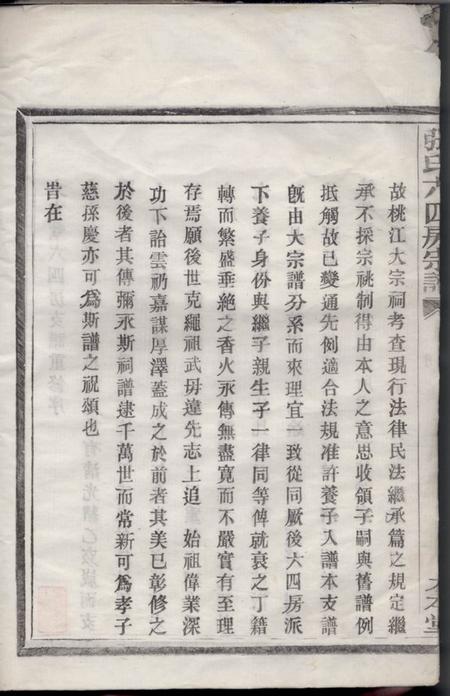 張氏六四房宗譜
故桃江大宗祠考查現行法律民法繼承篇之規定繼
承不採宗祧制得由本人之意思收領子嗣與舊譜例
抵觸故已變通先例適合法規准許養子入譜本支譜
既由大宗譜分系而來理宜一致從同厥後六四房派
下養子身份與繼子親生子一律同等俾就衰之丁籍
轉而繁盛垂絶之香火永傳無盡寬而不嚴實有至理
存焉願後世克繩祖武毋違先志上追 始祖偉業深
功下詒雲礽嘉謀厚澤蓋成之於前者其美已彰修之
於後者其傳彌永斯祠譜逮千萬世而常新可爲孝子
慈孫慶亦可爲斯譜之祝頌也
旹在